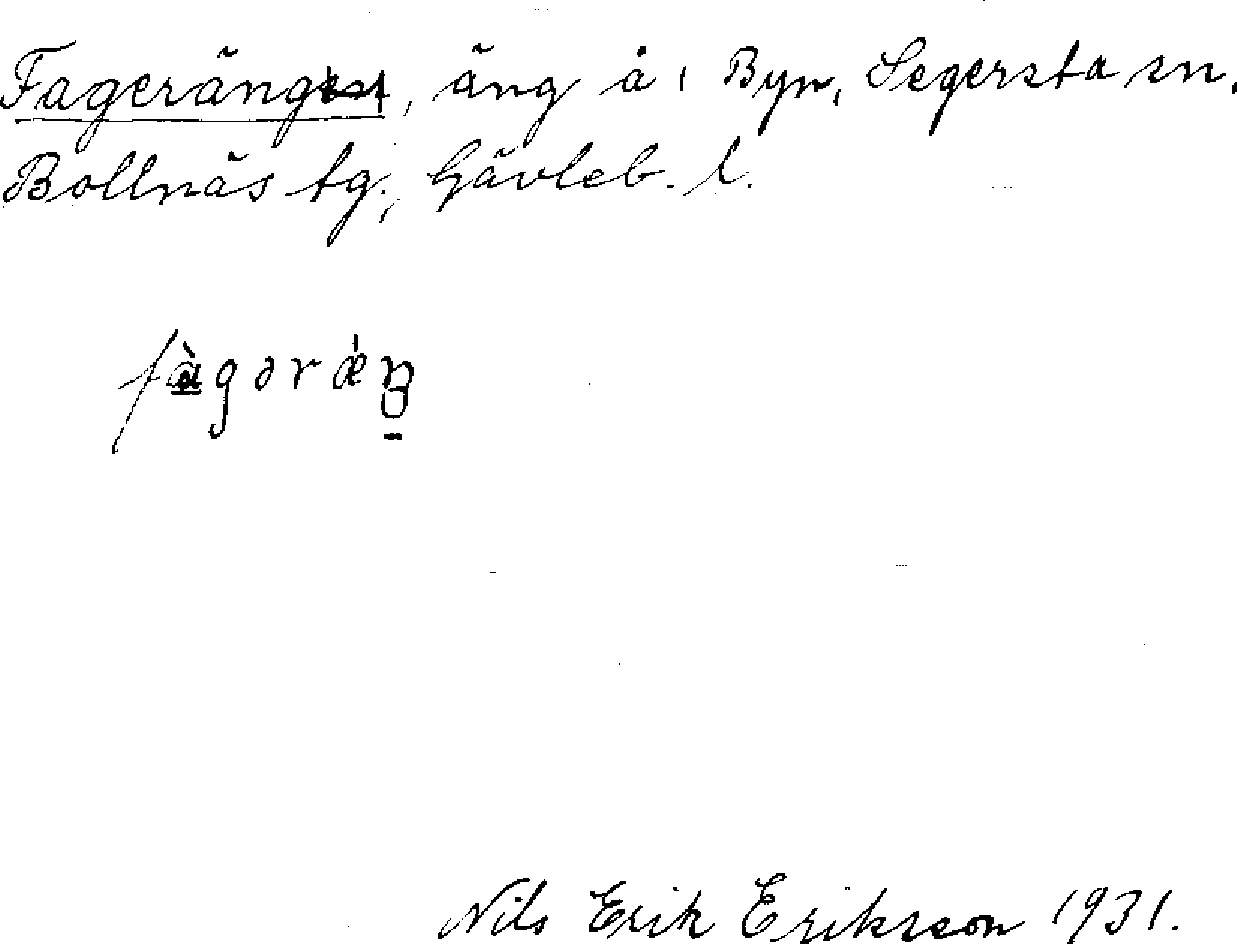 Fageräng, äng å 1 Byn, Segersta sn.
Bollnäs tg., Gävleb. l.
fàgəræ̀ŋ
Nils Erik Eriksson 1931.